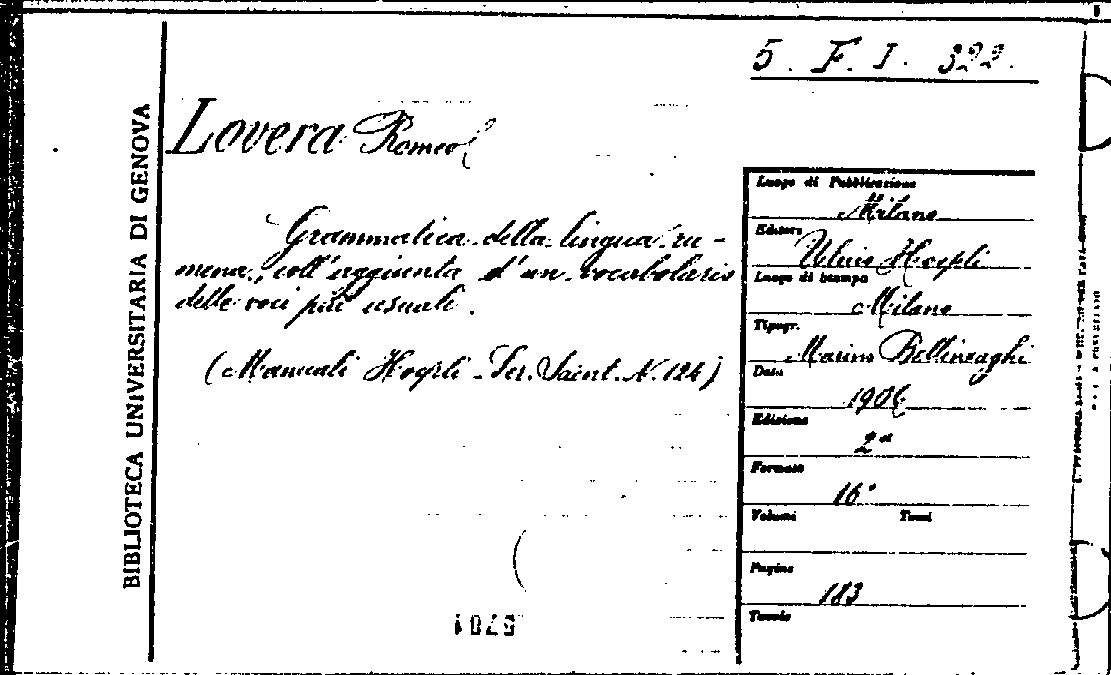 5. F. I. 322.
BIBLIOTECA UNIVERSITARIA DI GENOVA
Lovera Romeo
Grammatica della lingua ru-
mena, coll'aggiunta d'un vocabolario
delle voci più usuali.
(Manuali Hoepli - Ser. Scient. N. 124)
Luogo di Pubblicazione
Milano
Editore
Ulrico Hoepli
Luogo di stampa
Milano
Tipogr.
Marino Bellinzaghi
Data
1906
Edizione
2ª
Formato
16°
Volumi Tomi
Pagine
183
Tavole